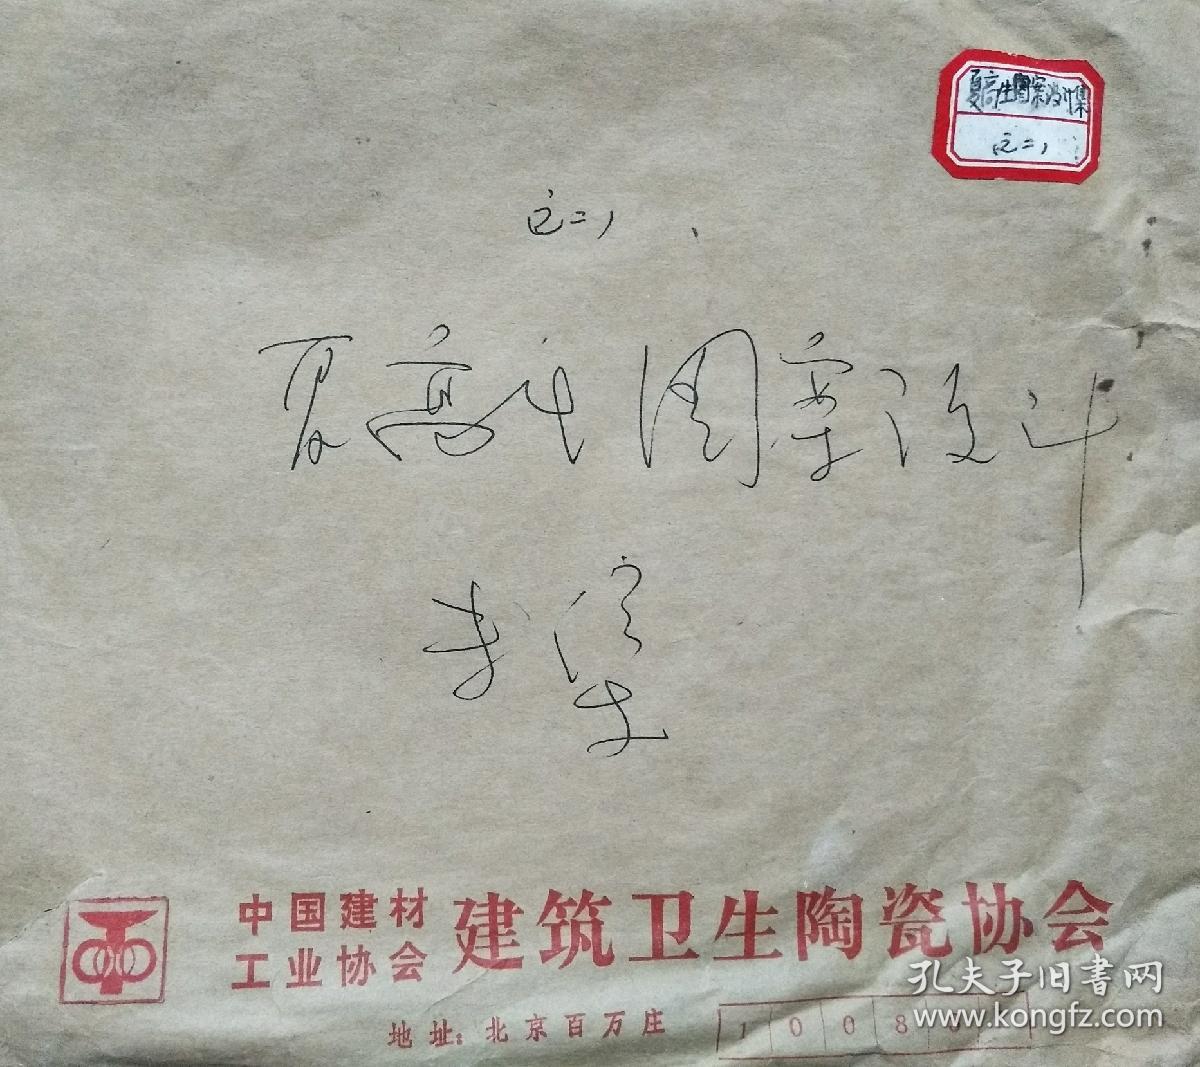 夏高生图案设计集
之二
之二
夏高生图案设计
中国建材
工业协会
建筑卫生陶瓷协会
地址：北京百万庄
1008
孔夫子旧书网
www.kongfz.com